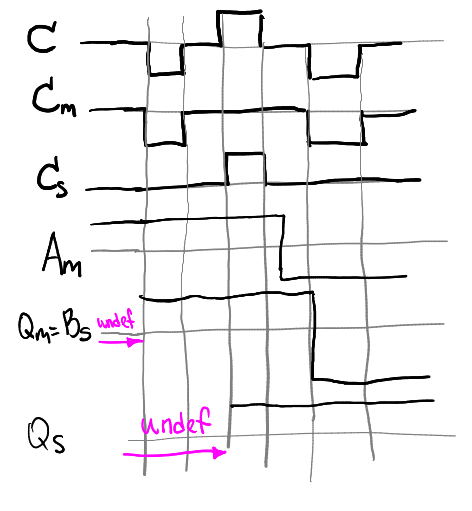 C
Cm
Cs
Am
Qm=Bs undef
undef
Qs